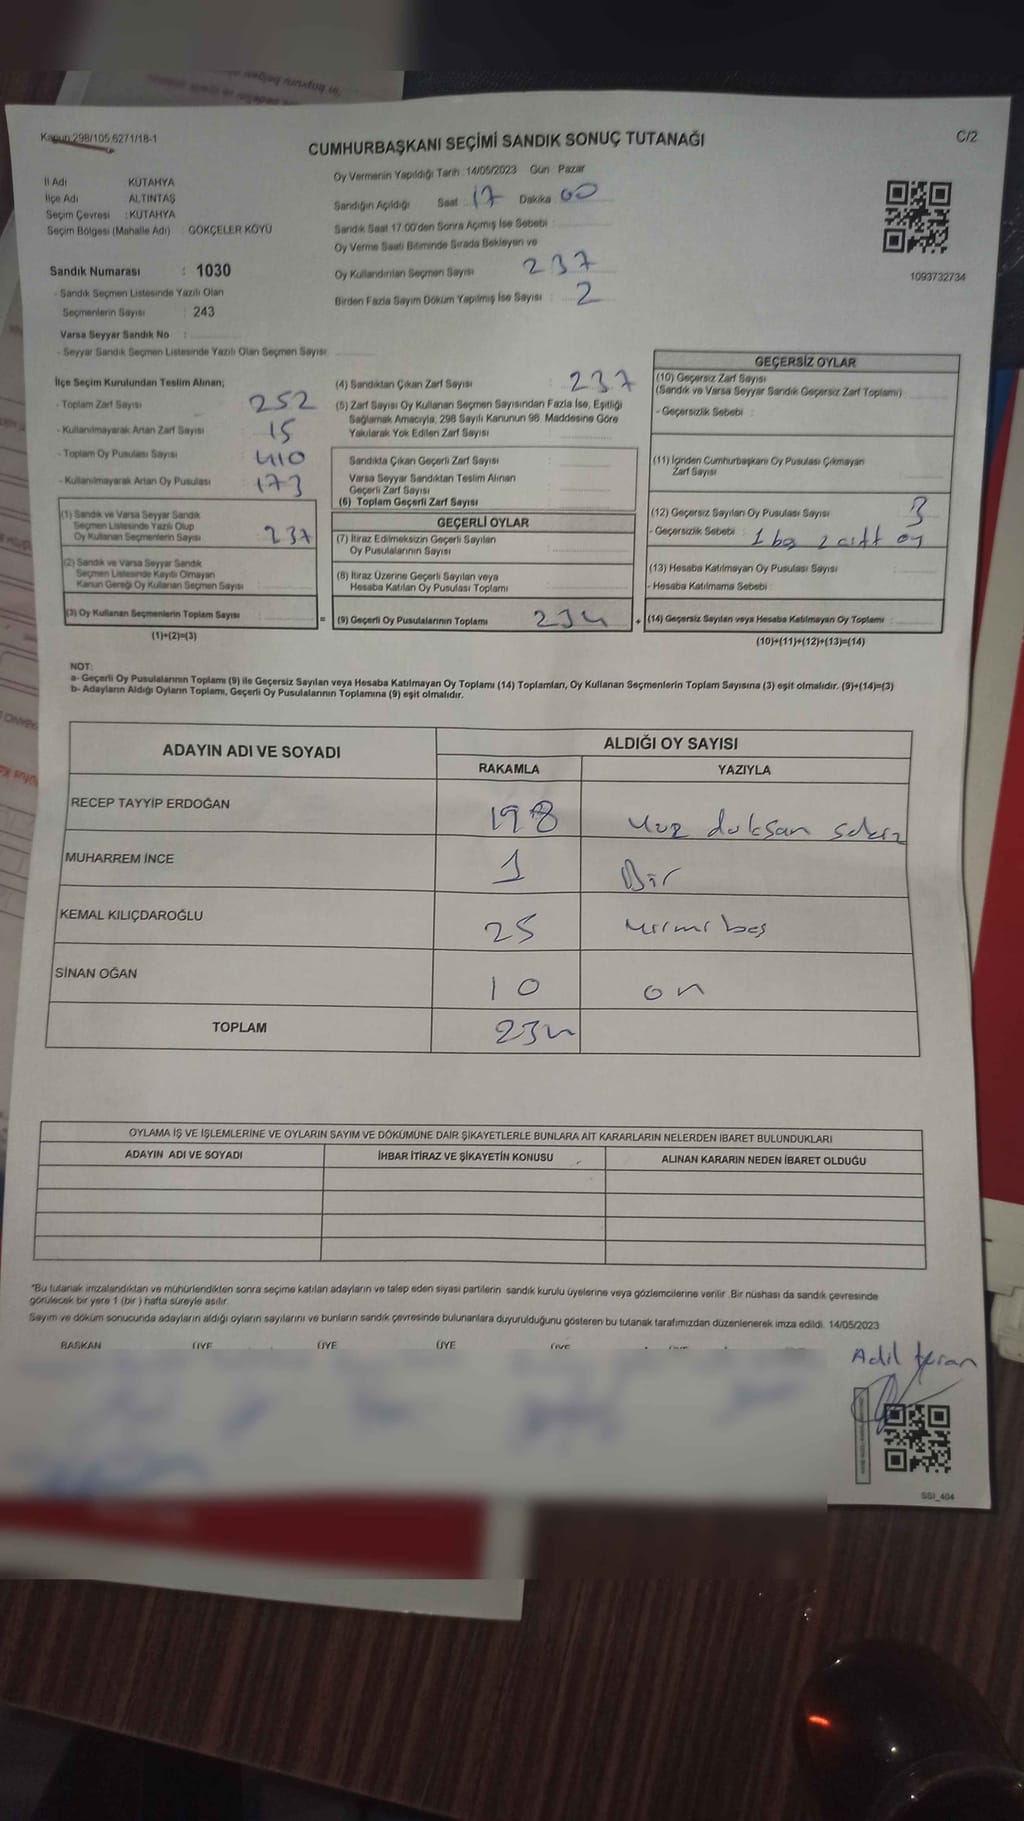 Kanun:298/105,6271/18-1
CUMHURBAŞKANI SEÇİMİ SANDIK SONUÇ TUTANAĞI
C/2
İl Adı KÜTAHYA
İlçe Adı ALTINTAŞ
Seçim Çevresi : KÜTAHYA
Seçim Bölgesi (Mahalle Adı) : GÖKÇELER KÖYÜ
Sandık Numarası : 1030
- Sandık Seçmen Listesinde Yazılı Olan
Seçmenlerin Sayısı : 243
Varsa Seyyar Sandık No :
- Seyyar Sandık Seçmen Listesinde Yazılı Olan Seçmen Sayısı:
Oy Vermenin Yapıldığı Tarih : 14/05/2023 Gün : Pazar
Sandığın Açıldığı Saat : 17 Dakika : 00
Sandık Saat 17:00'den Sonra Açımış İse Sebebi :
Oy Verme Saati Bitiminde Sırada Bekleyen ve
Oy Kullandırılan Seçmen Sayısı 237
Birden Fazla Sayım Döküm Yapılmış İse Sayısı : 2
1093732734
İlçe Seçim Kurulundan Teslim Alınan;
- Toplam Zarf Sayısı 252
- Kullanılmayarak Artan Zarf Sayısı 15
- Toplam Oy Pusulası Sayısı 410
- Kullanılmayarak Artan Oy Pusulası 173
(1) Sandık ve Varsa Seyyar Sandık
Seçmen Listesinde Yazılı Olup
Oy Kullanan Seçmenlerin Sayısı : 237
(2) Sandık ve Varsa Seyyar Sandık
Seçmen Listesinde Kayıtlı Olmayan
Kanun Gereği Oy Kullanan Seçmen Sayısı
(3) Oy Kullanan Seçmenlerin Toplam Sayısı : =
(1)+(2)=(3)
(4) Sandıktan Çıkan Zarf Sayısı : 237
(5) Zarf Sayısı Oy Kullanan Seçmen Sayısından Fazla İse, Eşitliği
Sağlamak Amacıyla, 298 Sayılı Kanunun 98. Maddesine Göre
Yakılarak Yok Edilen Zarf Sayısı
Sandıkta Çıkan Geçerli Zarf Sayısı :
Varsa Seyyar Sandıktan Teslim Alınan
Geçerli Zarf Sayısı
(6) Toplam Geçerli Zarf Sayısı
GEÇERLİ OYLAR
(7) İtiraz Edilmeksizin Geçerli Sayılan
Oy Pusulalarının Sayısı
(8) İtiraz Üzerine Geçerli Sayılan veya
Hesaba Katılan Oy Pusulası Toplamı
(9) Geçerli Oy Pusulalarının Toplamı 234 +
GEÇERSİZ OYLAR
(10) Geçersiz Zarf Sayısı
(Sandık ve Varsa Seyyar Sandık Geçersiz Zarf Toplamı)
- Geçersizlik Sebebi :
(11) İçinden Cumhurbaşkanı Oy Pusulası Çıkmayan
Zarf Sayısı
(12) Geçersiz Sayılan Oy Pusulası Sayısı 3
- Geçersizlik Sebebi : 1 boş 2 çift oy
(13) Hesaba Katılmayan Oy Pusulası Sayısı :
- Hesaba Katılmama Sebebi :
(14) Geçersiz Sayılan veya Hesaba Katılmayan Oy Toplamı :
(10)+(11)+(12)+(13)=(14)
NOT:
a- Geçerli Oy Pusulalarının Toplamı (9) ile Geçersiz Sayılan veya Hesaba Katılmayan Oy Toplamı (14) Toplamları, Oy Kullanan Seçmenlerin Toplam Sayısına (3) eşit olmalıdır. (9)+(14)=(3)
b- Adayların Aldığı Oyların Toplamı, Geçerli Oy Pusulalarının Toplamına (9) eşit olmalıdır.
ADAYIN ADI VE SOYADI ALDIĞI OY SAYISI
RAKAMLA YAZIYLA
RECEP TAYYİP ERDOĞAN 198 Yüz doksan sekiz
MUHARREM İNCE 1 Bir
KEMAL KILIÇDAROĞLU 25 yirmi beş
SİNAN OĞAN 10 on
TOPLAM 234
OYLAMA İŞ VE İŞLEMLERİNE VE OYLARIN SAYIM VE DÖKÜMÜNE DAİR ŞİKAYETLERLE BUNLARA AİT KARARLARIN NELERDEN İBARET BULUNDUKLARI
ADAYIN ADI VE SOYADI İHBAR İTİRAZ VE ŞİKAYETİN KONUSU ALINAN KARARIN NEDEN İBARET OLDUĞU
*Bu tutanak imzalandıktan ve mühürlendikten sonra seçime katılan adayların ve talep eden siyasi partilerin sandık kurulu üyelerine veya gözlemcilerine verilir. Bir nüshası da sandık çevresinde
görülecek bir yere 1 (bir ) hafta süreyle asılır.
Sayım ve döküm sonucunda adayların aldığı oyların sayılarını ve bunların sandık çevresinde bulunanlara duyurulduğunu gösteren bu tutanak tarafımızdan düzenlenerek imza edildi. 14/05/2023
BAŞKAN ÜYE ÜYE ÜYE ÜYE ÜYE
Adil
SSI_404